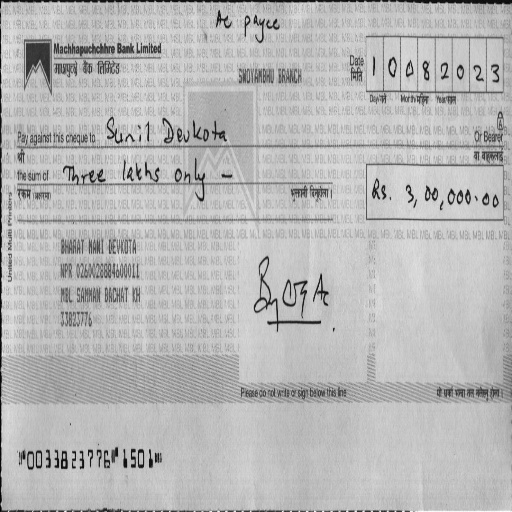 Ac payee
Machhapuchchhre Bank Limited
माछापुच्छ्रे बैंक लिमिटेड
SWOYAMBHU BRANCH
Date
मिति
1 0 0 8 2 0 2 3
Day/गते Month/महिना Year/साल
Pay against this cheque to Sunil Devkota Or Bearer
श्री वा वाहकलाई
the sum of Three lakhs only - Rs. 3,00,000.00
रकम (अक्षरमा) भुक्तानी दिनुहोला।
United Multi Printers
BHARAT MANI DEVKOTA
NPR 0260028884600011
MBL SAMMAN BACHAT KH
33823776
Please do not write or sign below this line
यो धर्का भन्दा तल नलेख्नु होला।
⑈0033823776⑈1501⑈